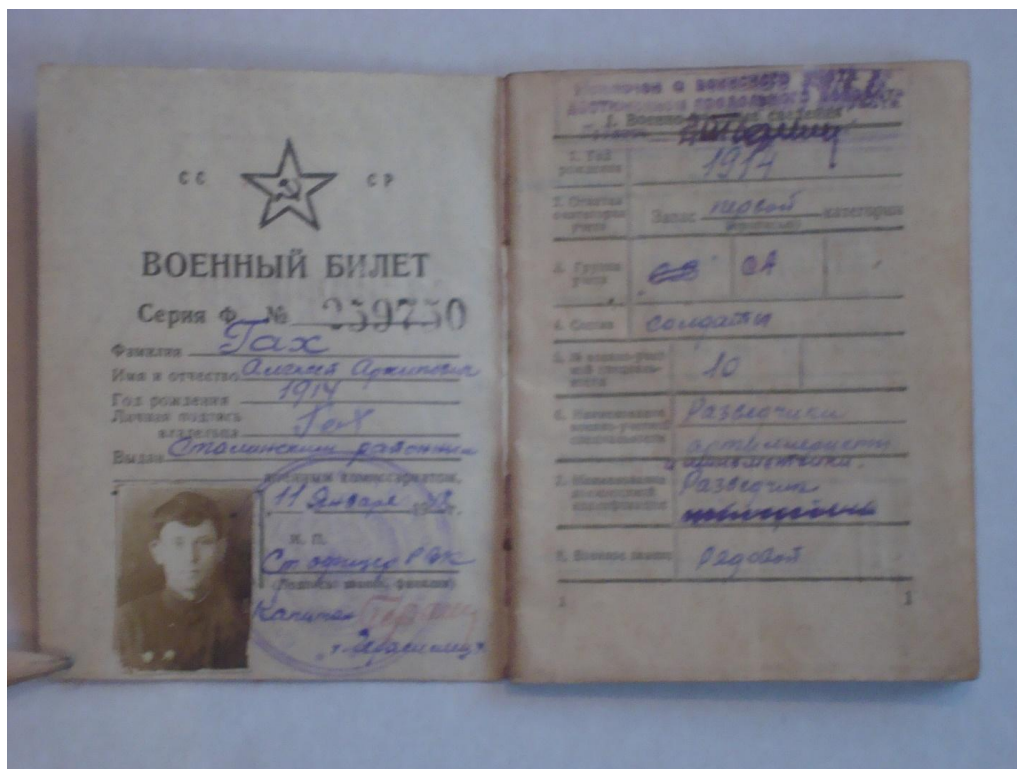 СС СР
ВОЕННЫЙ БИЛЕТ
Серия Ф № 259750
Фамилия Гах
Имя и отчество Алексей Архипович
Год рождения 1914
Личная подпись
владельца Гах
Выдан Сталинским районным
военным комиссариатом,
11 Января г.
М. П.
Ст офицер РВК
(Подпись, звание, фамилия)
Капитан
Исключен с воинского учета
достижением предельного возраста
1. сведения
1. Год
рождения 1914
2.
категория
учета Запас первой категории
3. Группа
учета СА
4. Состав солдаты
5. № военно-учетной
специальности 10
6. Наименование
военно-учетной
специальности Разведчики
артиллеристы
и минометчики.
7. Наименование
Разведчик
8. Воинское звание Рядовой
1